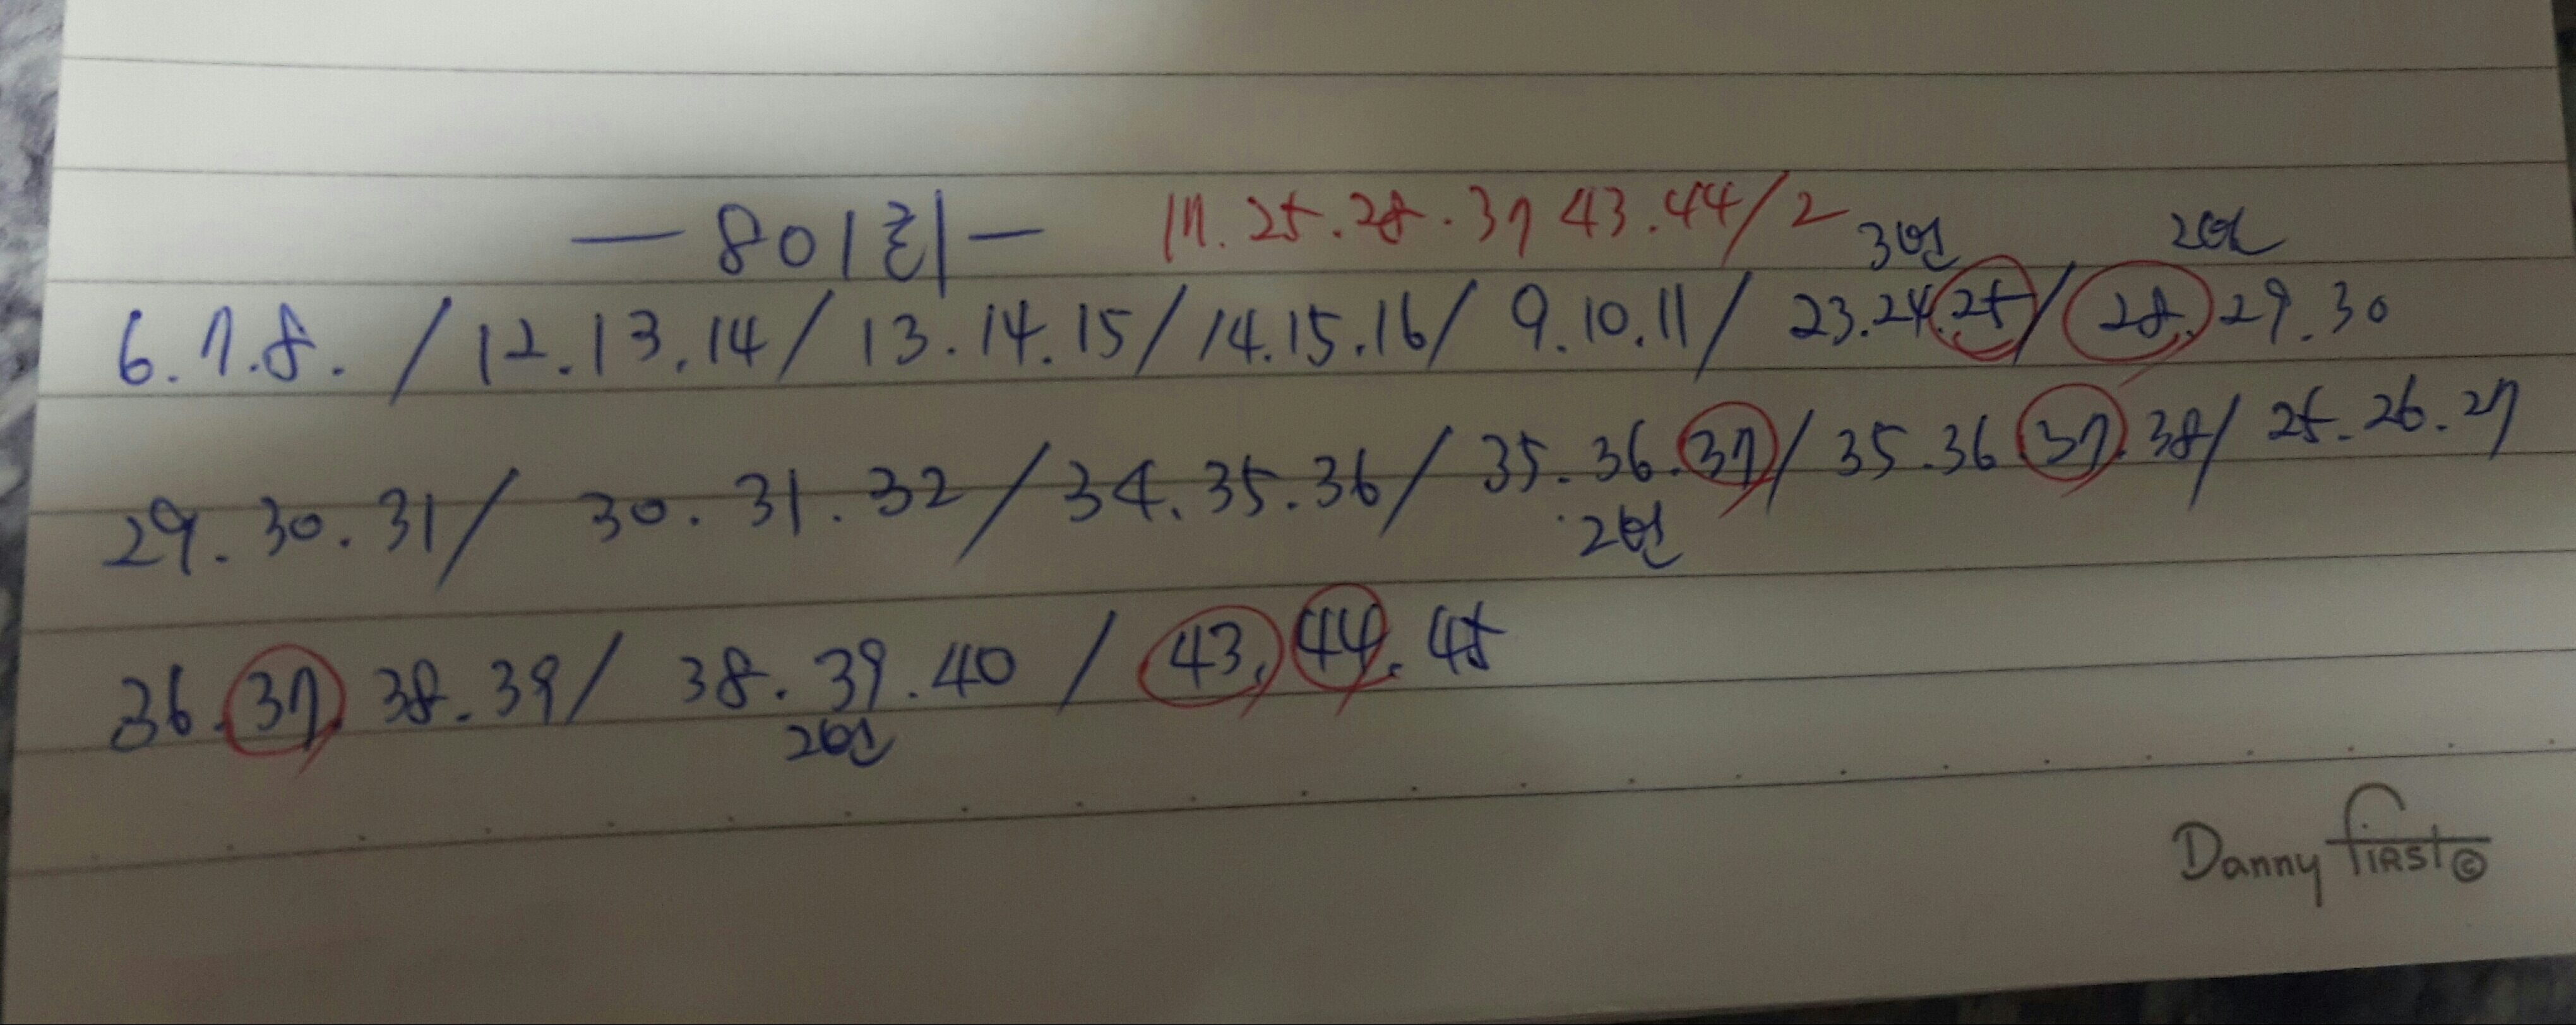 — 801회 — 17. 25. 28. 37 43. 44/2
3번 2번
6. 7. 8. / 12. 13. 14 / 13. 14. 15 / 14. 15. 16 / 9. 10. 11 / 23. 24. 25 / 28. 29. 30
29. 30. 31 / 30. 31. 32 / 34. 35. 36 / 35. 36. 37 / 35. 36 37. 38 / 25. 26. 27
2번
36. 37. 38. 39 / 38. 39. 40 / 43. 44. 45
2번
Danny First ©